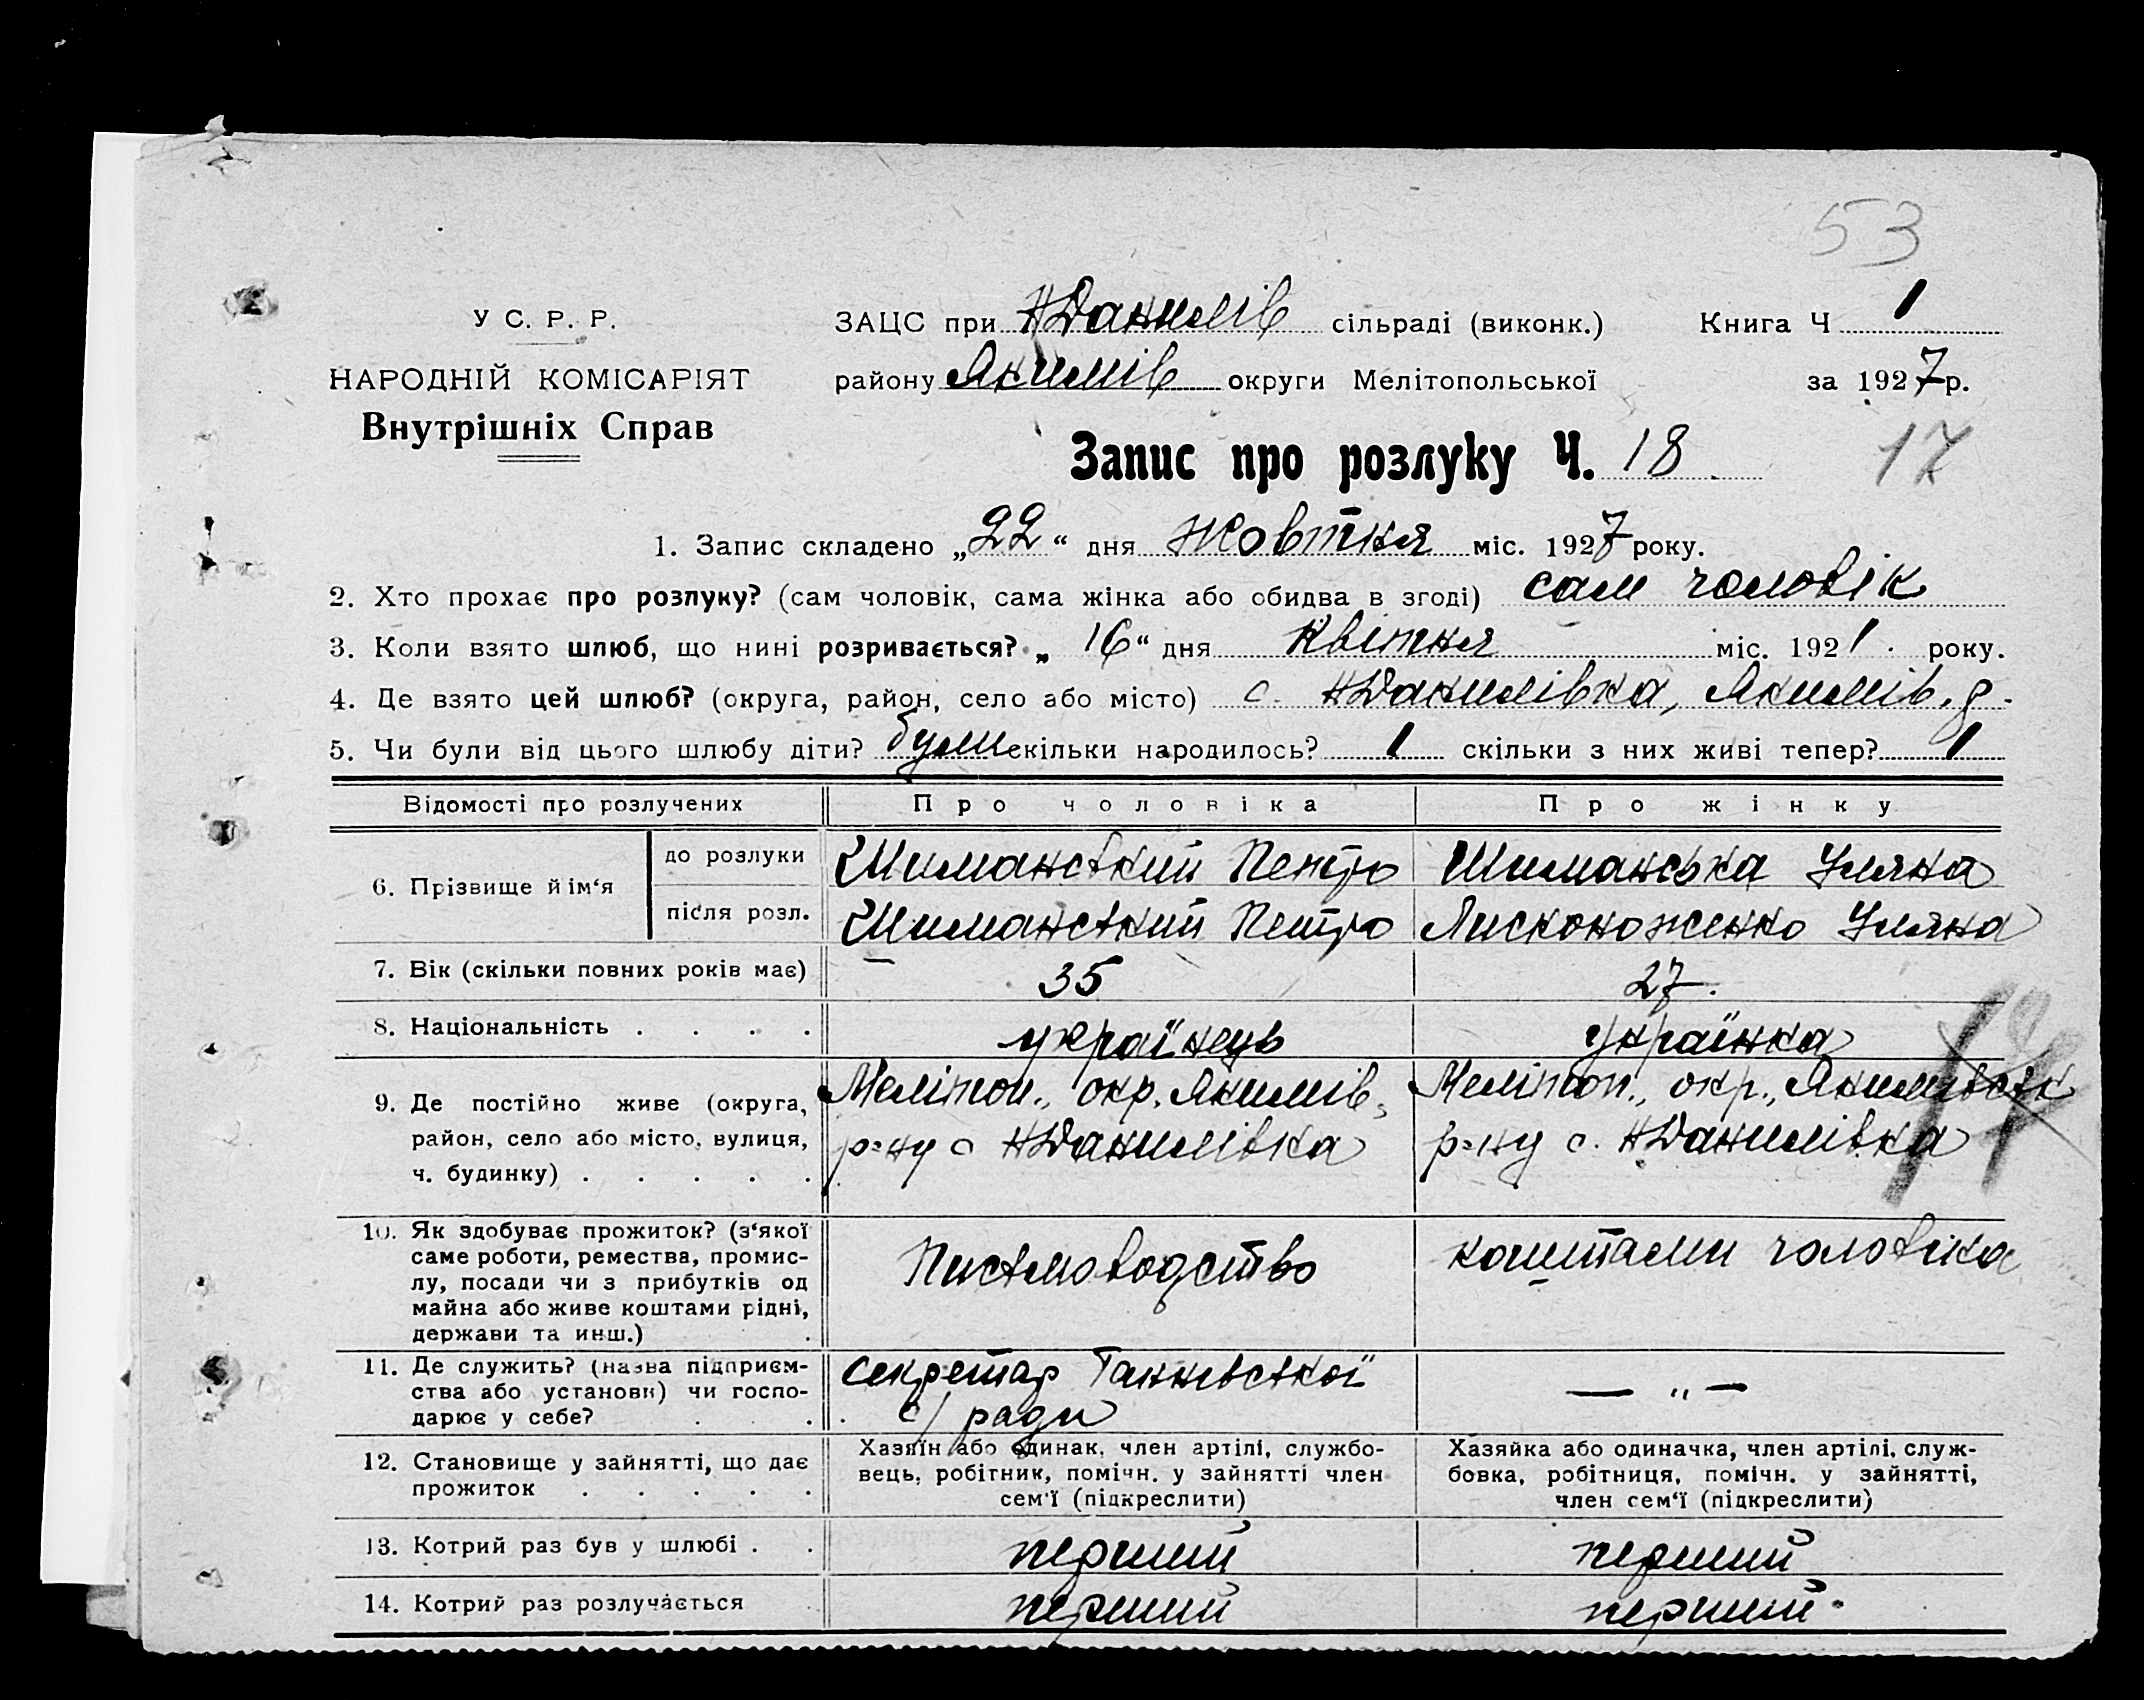 53
У С. Р. Р. ЗАЦС при НДанилів сільраді (виконк.) Книга Ч 1
НАРОДНІЙ КОМІСАРІЯТ району Якимів округи Мелітопольської за 1927 р.
Внутрішніх Справ
Запис про розлуку Ч. 18 17
1. Запис складено „22“ дня Жовтня міс. 1927 року.
2. Хто прохає про розлуку? (сам чоловік, сама жінка або обидва в згоді) сам чоловік
3. Коли взято шлюб, що нині розривається? „16“ дня Квітня міс. 1921 року.
4. Де взято цей шлюб? (округа, район, село або місто) с. НДанилівка, Якимів. р.
5. Чи були від цього шлюбу діти? були скільки народилось? 1 скільки з них живі тепер? 1
Відомості про розлучених Про чоловіка Про жінку
6. Прізвище й ім‘я
до розлуки Шиманський Петро Шиманська Уляна
після розл. Шиманський Петро Лисконоженко Уляна
7. Вік (скільки повних років має) 35 27.
8. Національність . . . . українець українка
9. Де постійно живе (округа, Меліton., окр. Якимів. Меліton., окр., Якимівськ
район, село або місто, вулиця, р-ну с НДанилівка р-ну с. НДанилівка
ч. будинку) . . . . .
10. Як здобуває прожиток? (з‘якої
саме роботи, ремества, промис- Письмоводство коштами чоловіка
лу, посади чи з прибутків од
майна або живе коштами рідні,
держави та инш.)
11. Де служить? (назва підприєм- секретар Ганнівської
ства або установи) чи госпо- с/ ради — „ —
дарює у себе?
12. Становище у зайнятті, що дає
прожиток . . . . .
Хазяїн або одинак, член артілі, службо-
вець, робітник, помічн. у зайнятті член
сем‘ї (підкреслити)
Хазяйка або одиначка, член артілі, служ-
бовка, робітниця, помічн. у зайнятті,
член сем‘ї (підкреслити)
13. Котрий раз був у шлюбі . . перший перший
14. Котрий раз розлучається перший перший.